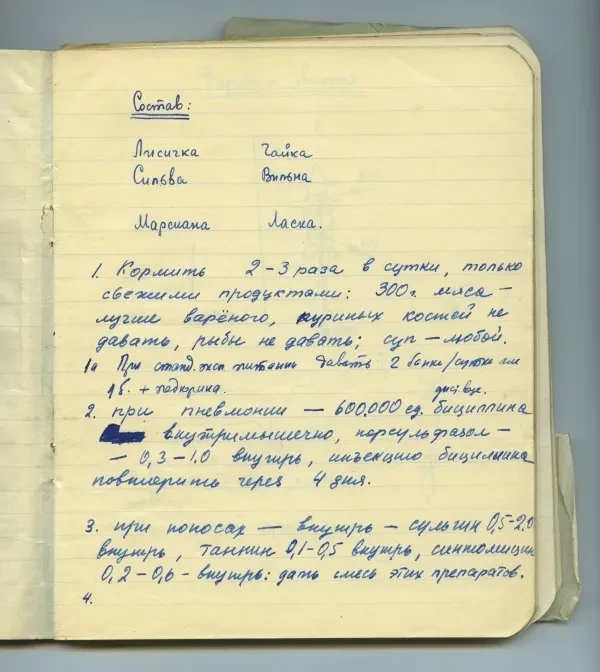 Состав:
Лисичка Чайка
Сильва Вильна
Марсиана Ласка.
1. Кормить 2-3 раза в сутки, только
свежими продуктами: 300г. мяса -
лучше варёного, куриных костей не
давать, рыбы не давать; суп - любой.
1а При станд. экс. питании давать 2 банки/сутки или
1б. + подкормка.
2. при пневмонии - 600.000 ед. бициллина
внутримышечно, норсульфазол -
- 0,3-1.0 внутрь, инъекцию бициллина
повторить через 4 дня.
3. при поносах - внутрь - сульгин 0,5-2.0
внутрь, таннин 0,1-0,5 внутрь, синтомицин
0,2-0,6 - внутрь: дать смесь этих препаратов.
4.